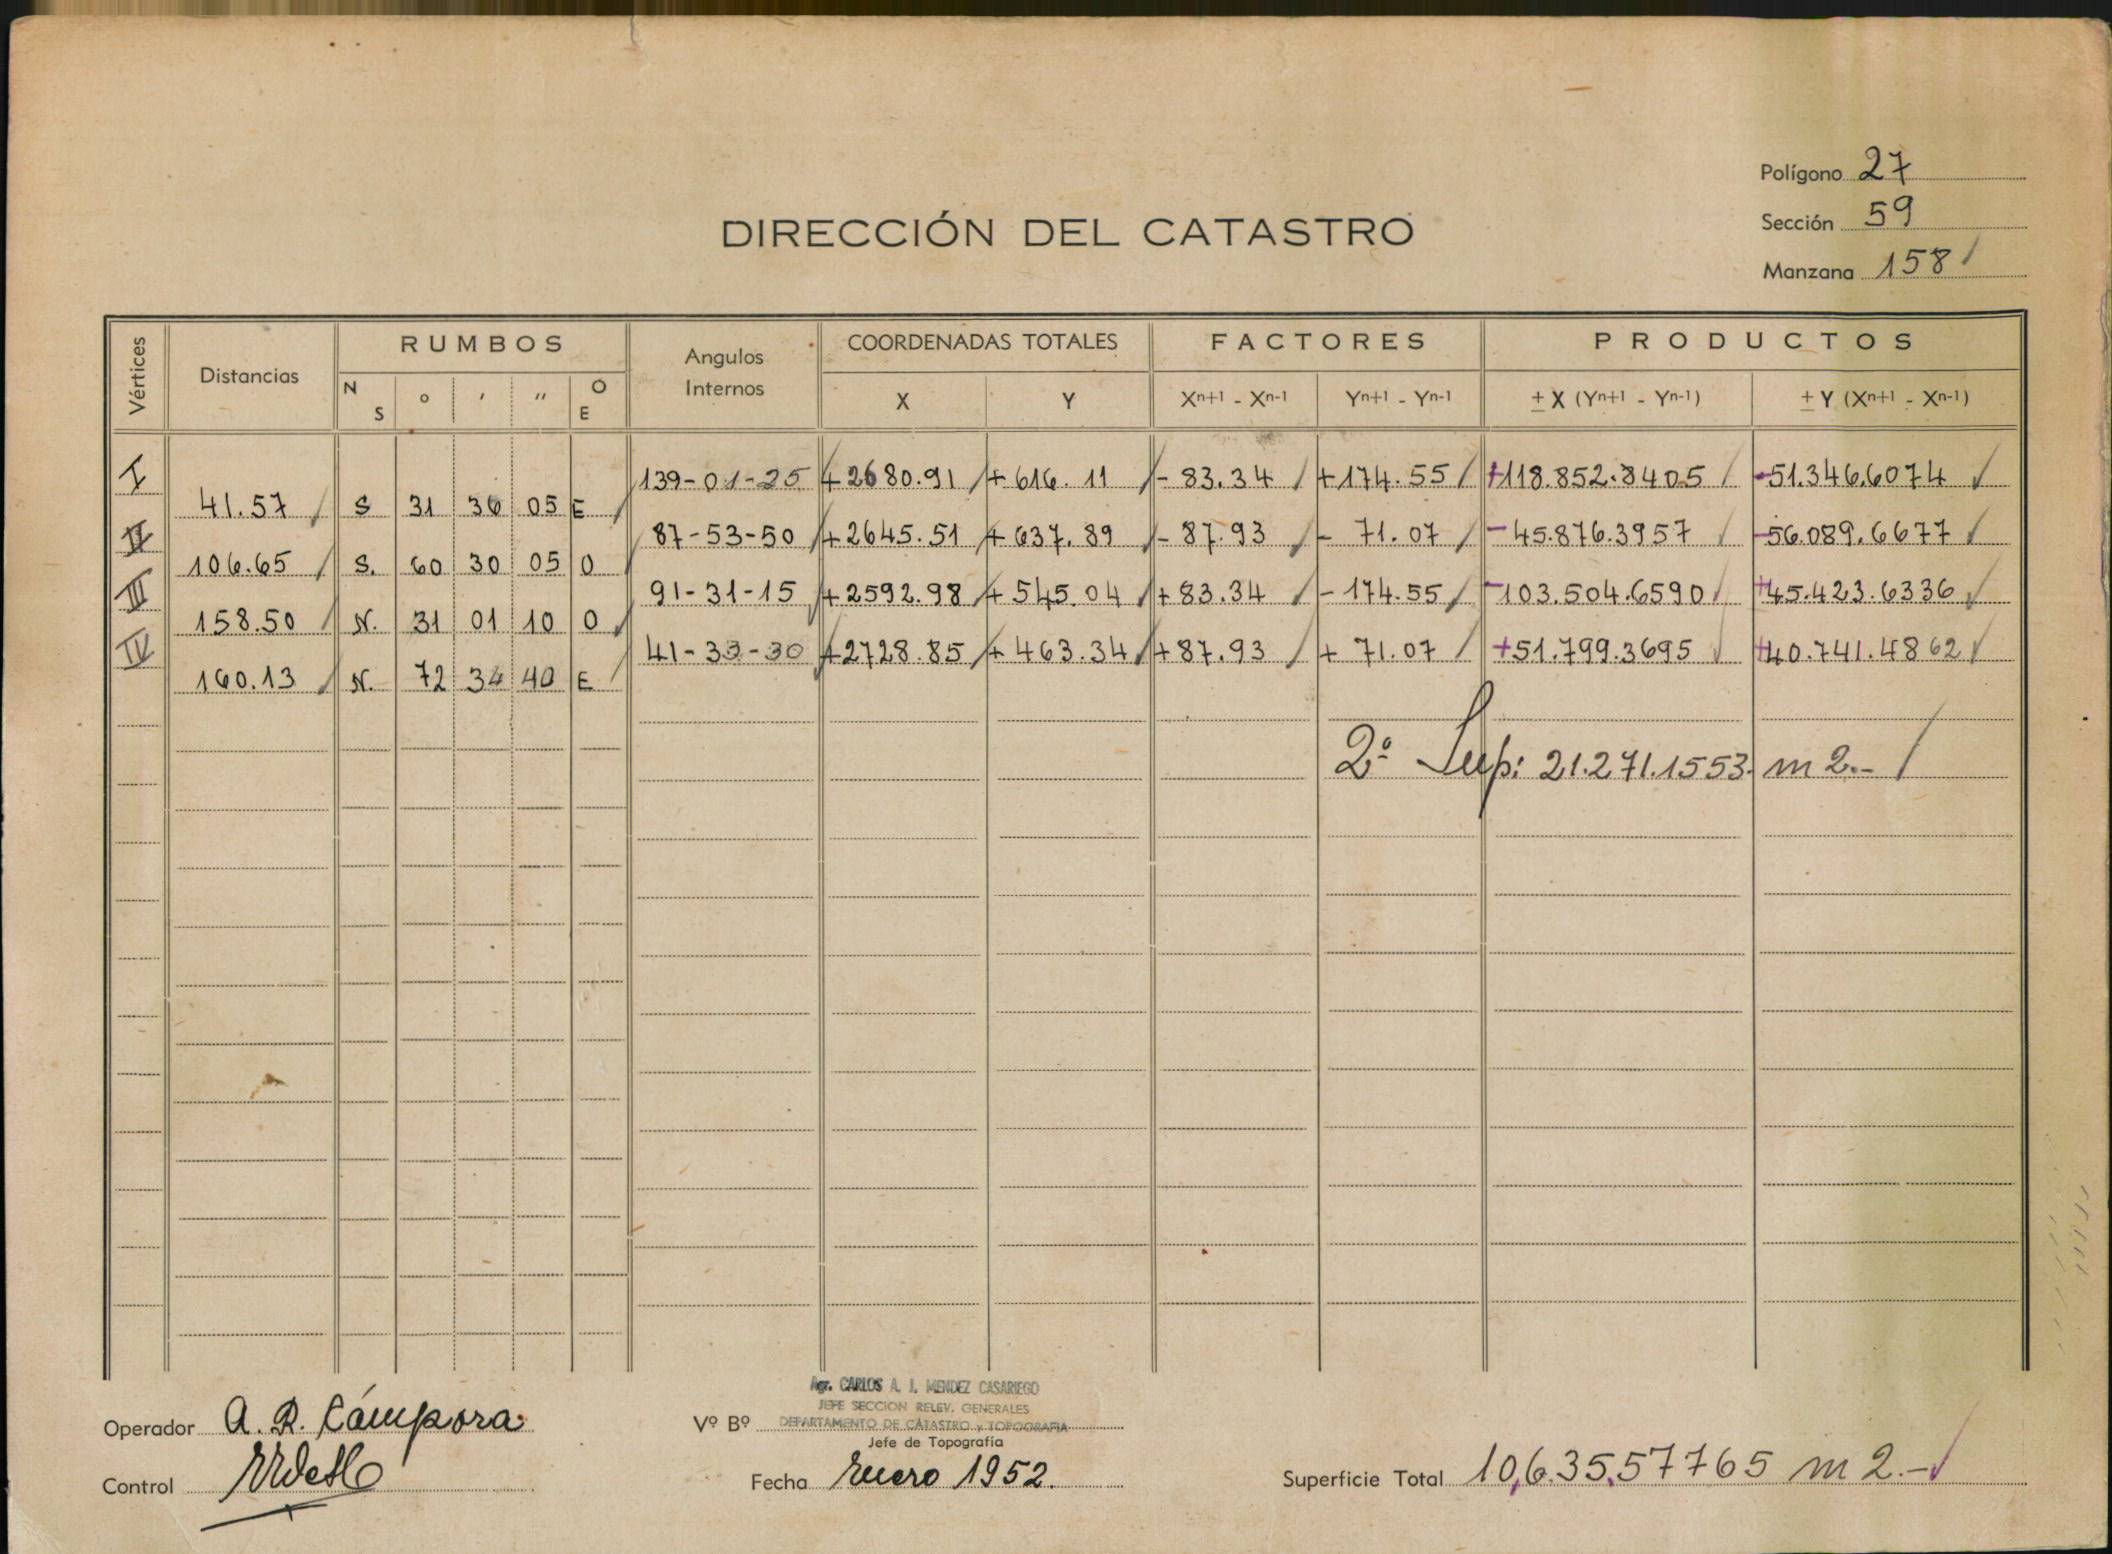 Polígono 27
DIRECCIÓN DEL CATASTRO
Sección 59
Manzana 158
Vértices Distancias RUMBOS Angulos Internos COORDENADAS TOTALES FACTORES PRODUCTOS
N S ° ′ ″ O E X Y Xⁿ⁺¹ - Xⁿ⁻¹ Yⁿ⁺¹ - Yⁿ⁻¹ ± X (Yⁿ⁺¹ - Yⁿ⁻¹) ± Y (Xⁿ⁺¹ - Xⁿ⁻¹)
I 139-01-25 +2680.91 +616.11 -83.34 +174.55 +118.852.8405 -51.346.6074
41.57 S 31 36 05 E
II 87-53-50 +2645.51 +637.89 -87.93 -71.07 -45.876.3957 -56.089.6677
106.65 S. 60 30 05 O
III 91-31-15 +2592.98 +545.04 +83.34 -174.55 -103.504.6590 +45.423.6336
158.50 N. 31 01 10 O
IV 41-33-30 +2728.85 +463.34 +87.93 +71.07 +51.799.3695 +40.741.4862
160.13 N. 72 34 40 E
2º Sup: 21.271.1553. m2.-
Agr. CARLOS A. J. MENDEZ CASARIEGO
JEFE SECCION RELEV. GENERALES
Operador A. R. Cámpora Vº Bº DEPARTAMENTO DE CATASTRO y TOPOGRAFIA
Jefe de Topografía
Control Fecha Enero 1952. Superficie Total 10,635.57765 m2.-